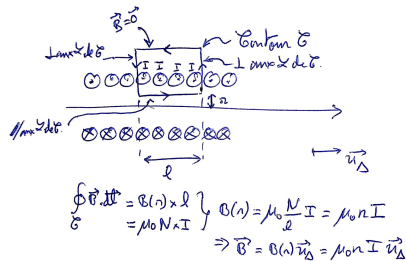 B⃗=0⃗
Contour C
⊥ aux L de C.
⊥ aux L de C.
I I I I
r
// aux L de C.
l
u⃗_Δ
∮_C B⃗.dl⃗ = B(r) × l
= μ₀ N × I
B(r) = μ₀ N/l I = μ₀ n I
⇒ B⃗ = B(r) u⃗_Δ = μ₀ n I u⃗_Δ